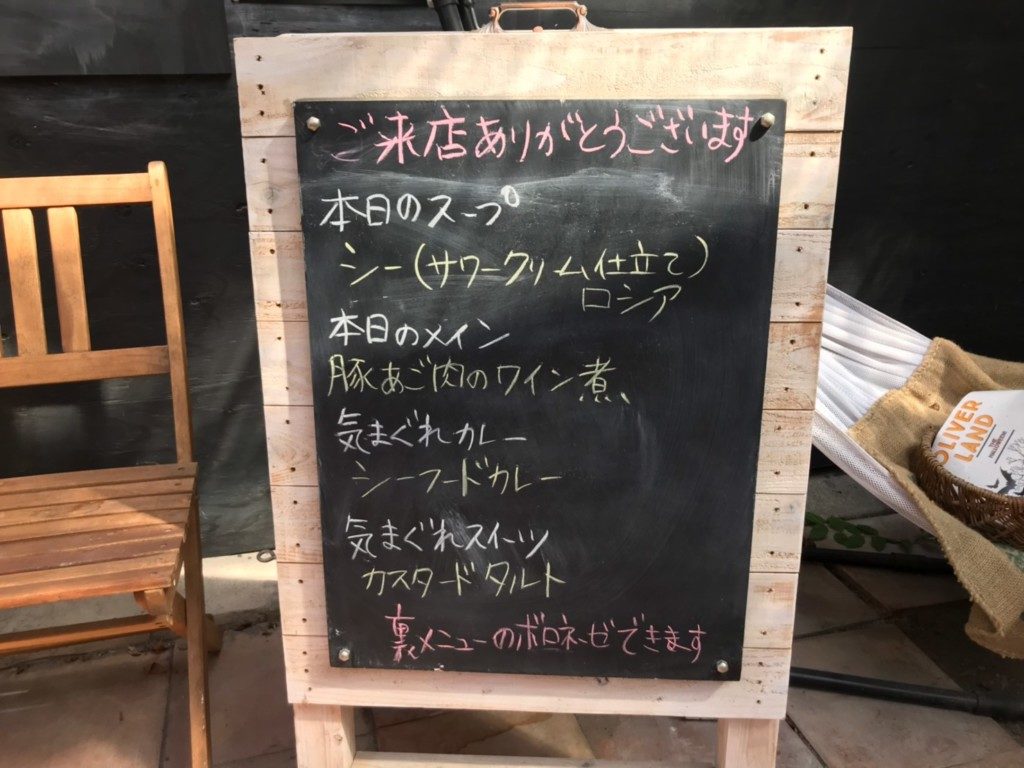 ご来店ありがとうございます
本日のスープ
シー(サワークリム仕立て)
ロシア
本日のメイン
豚あご肉のワイン煮、
気まぐれカレー
シーフードカレー
気まぐれスイーツ
カスタードタルト
裏メニューのボロネーゼできます
OLIVER
LAND
THE
HALLOWEEN